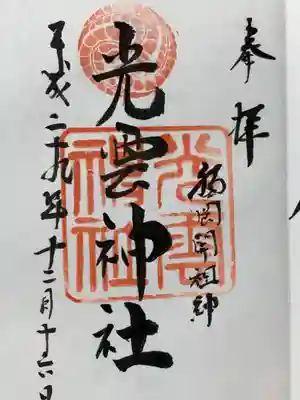 奉拝
福岡開祖神
光雲神社
平成二十九年十二月十六日